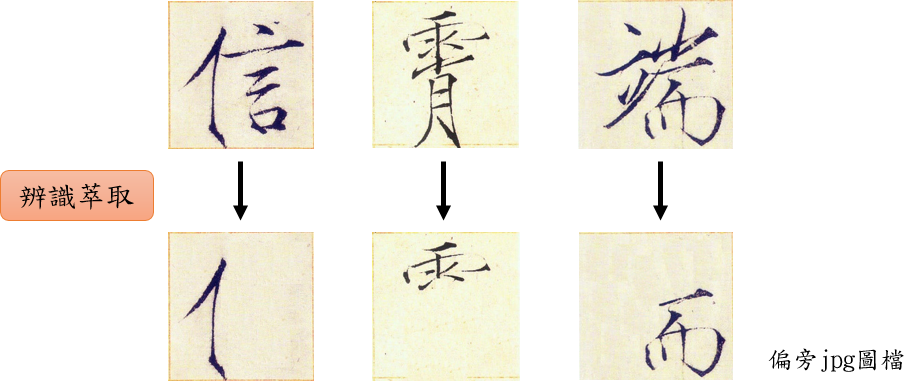 信 霄 端
辨識萃取
亻 ⻗ 而
偏旁jpg圖檔